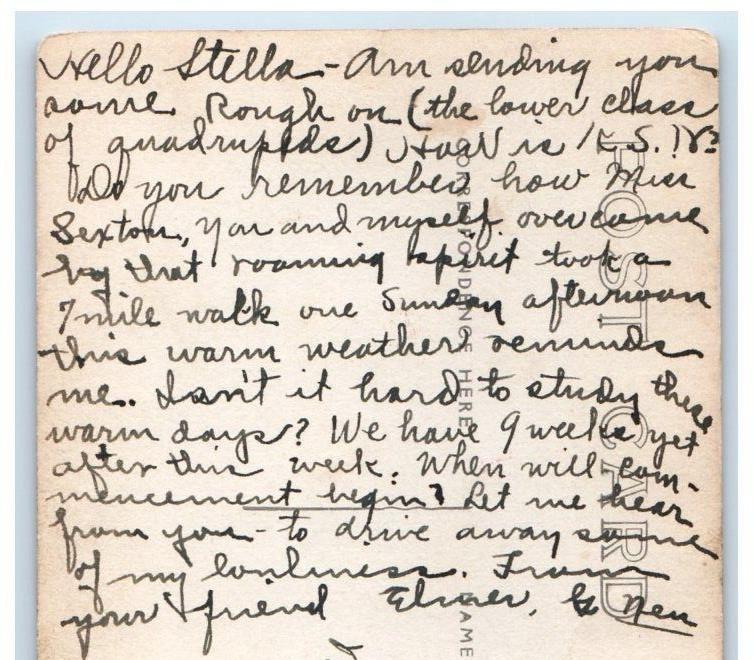 Hello Stella - Am sending you
some Rough on (the lower class
of quadrupeds) How is K.S.N?
Do you remember how Miss
Sexton, you and myself overcame
by that roaming spirit took a
7 mile walk one Sunday afternoon
this warm weather reminds
me.. Isn't it hard to study these
warm days? We have 9 weeks yet
after this week. When will com-
mencement begin? Let me hear
from you - to drive away some
of my lonliness. From
your friend Elmer,
POST CARD
CORRESPONDENCE HERE